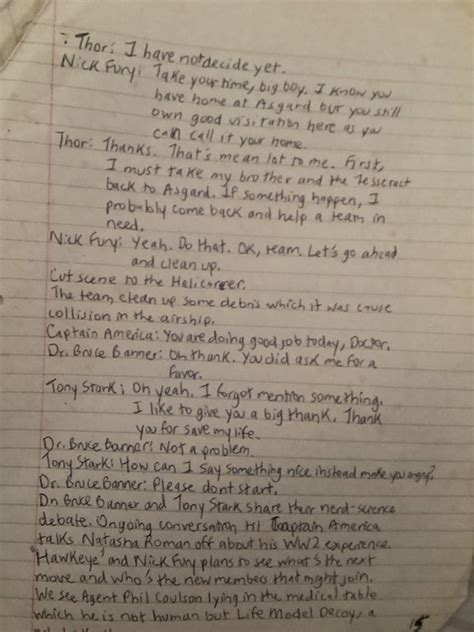 : Thor: I have not decide yet.
Nick Fury: Take your time, big boy. I know you
have home at Asgard but you still
own good visitation here as you
can call it your home.
Thor: Thanks. That's mean lot to me. First,
I must take my brother and the Tesseract
back to Asgard. If something happen, I
probably come back and help a team in
need.
Nick Fury: Yeah. Do that. OK, team. Let's go ahead
and clean up.
Cut scene to the Helicarrier.
The team clean up some debris which it was cause
collision in the airship.
Captain America: You are doing good job today, Doctor.
Dr. Bruce Banner: Oh thank. You did ask me for a
favor.
Tony Stark: Oh yeah. I forgot mention something.
I like to give you a big thank. Thank
you for save my life.
Dr. Bruce Banner: Not a problem.
Tony Stark: How can I say something nice instead make you angry?
Dr. Bruce Banner: Please dont start.
Dr. Bruce Banner and Tony Stark share their nerd-science
debate. Ongoing conversation Captain America
talks Natasha Roman off about his WW2 experience.
Hawkeye and Nick Fury plans to see what's the next
move and who's the new members that might join.
We see Agent Phil Coulson lying in the medical table
which he is not human but Life Model Decoy, a
15